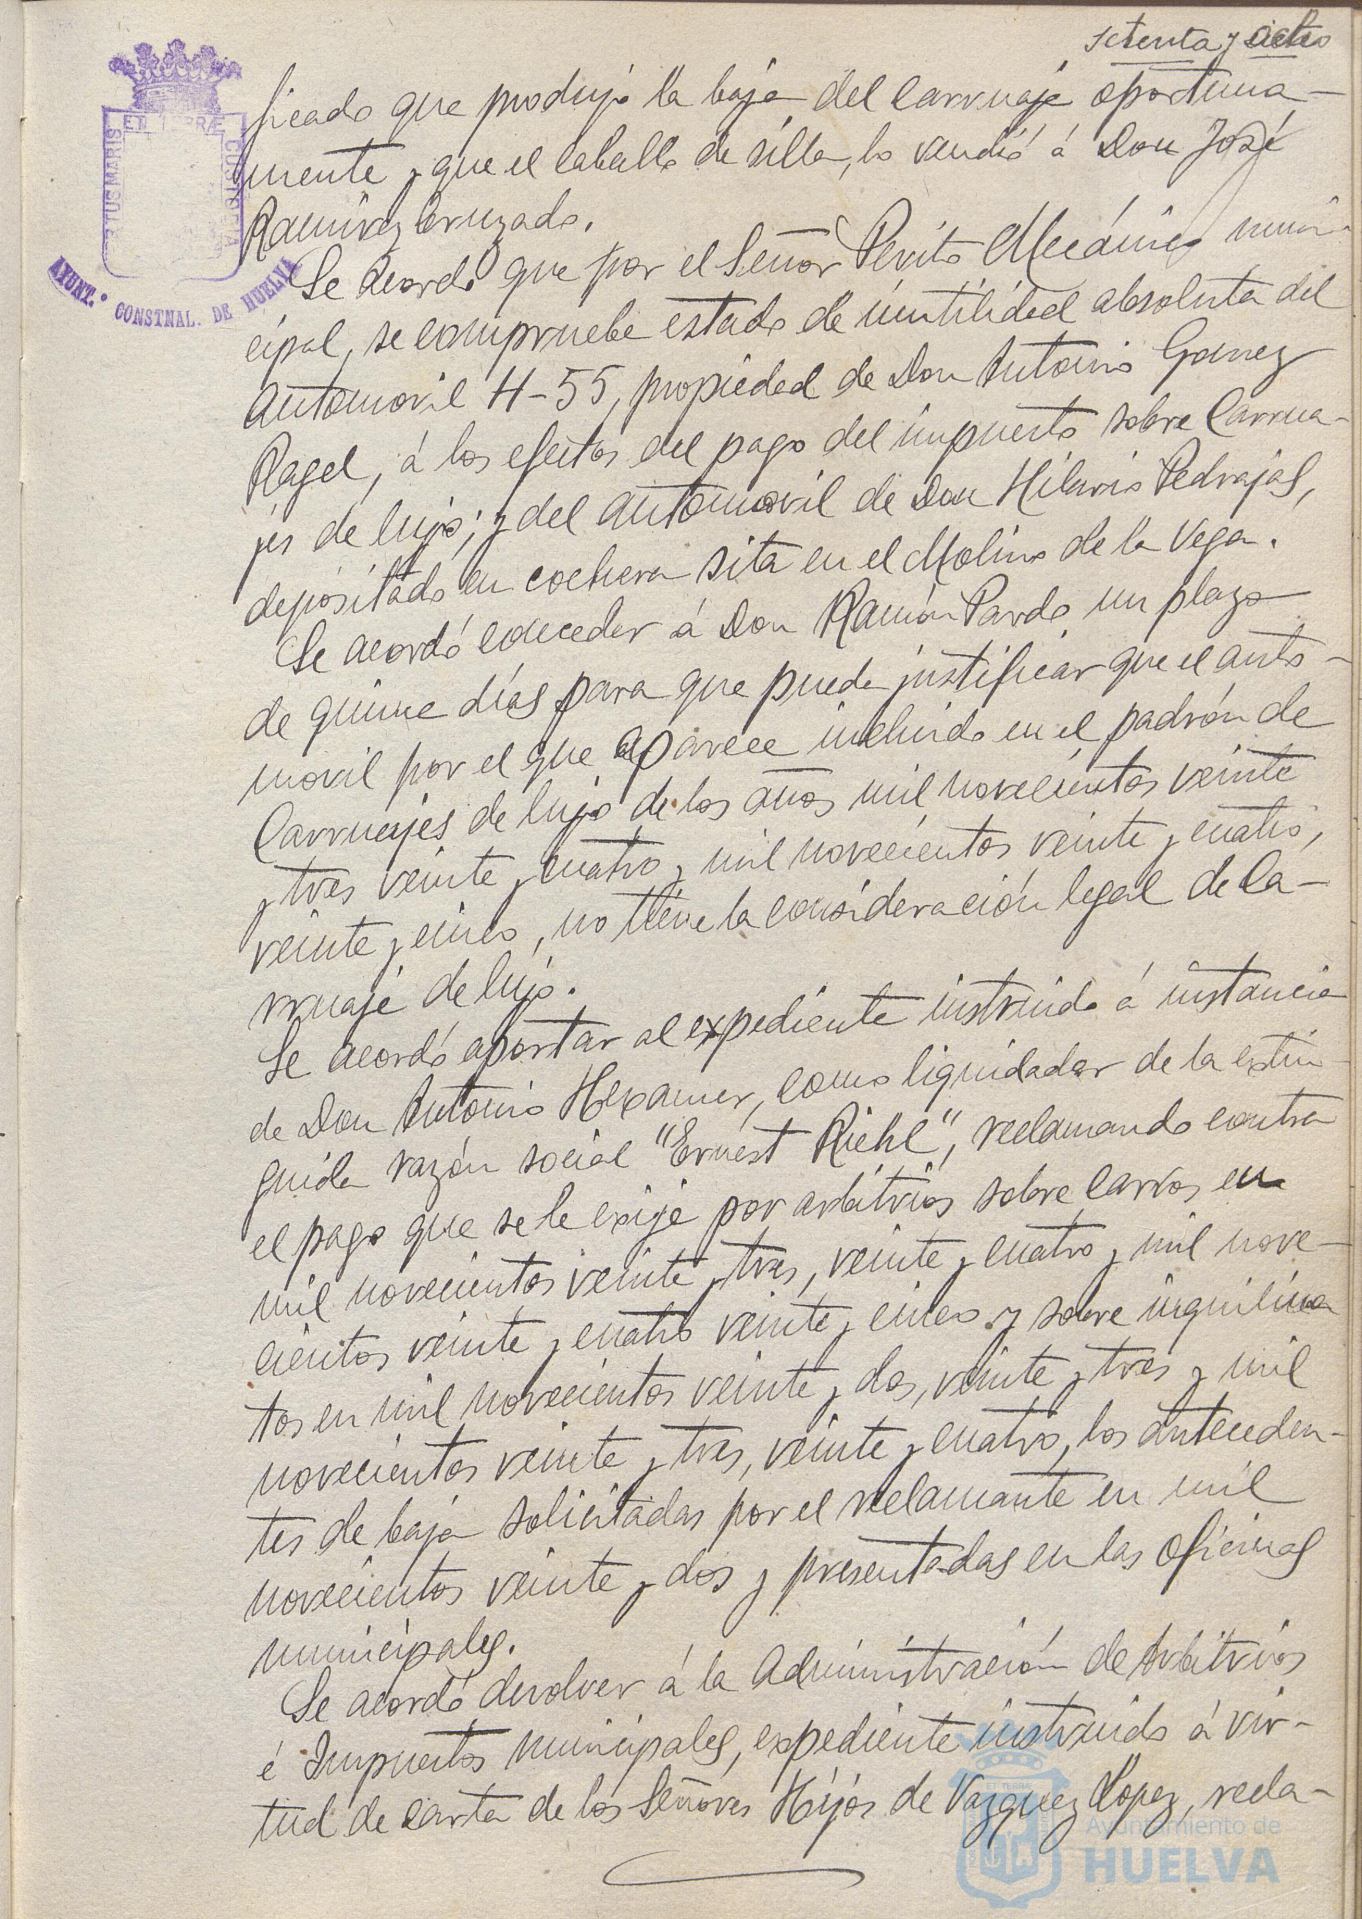 setenta y ocho
PORTUS MARIS
ET TERRÆ
CUSTODIA
AYUNT.º CONSTNAL. DE HUELVA
ficado que produjo la baja del carruaje oportuna-
mente y que el caballo de silla, lo vendió á Don José
Ramírez Cruzado.
Se acordó que por el Señor Perito Mecánico muni-
cipal, se compruebe estado de inutilidad absoluta del
automovil H-55, propiedad de Don Antonio Gomez
Ragel, á los efectos del pago del impuesto sobre Carrua-
jes de lujo; y del automovil de Don Hilario Pedrajas,
depositado en cochera sita en el Molino de la Vega.
Se acordó conceder á Don Ramón Pardo un plazo
de quince días para que pueda justificar que el auto-
movil por el que aparece incluido en el padrón de
Carruajes de lujo de los años mil novecientos veinte
y tres veinte y cuatro y mil novecientos veinte y cuatro,
veinte y cinco, no tiene la consideración legal de Ca-
rruaje de lujo.
Se acordó aportar al expediente instruido á instancia
de Don Antonio Hexamer, como liquidador de la extin-
guida razón social "Ernest Riehl", reclamando contra
el pago que se le exije por arbitrios sobre carros en
mil novecientos veinte y tres, veinte y cuatro y mil nove-
cientos veinte y cuatro veinte y cinco y sobre inquilina-
tos en mil novecientos veinte y dos, veinte y tres y mil
novecientos veinte y tres, veinte y cuatro, los anteceden-
tes de baja solicitadas por el reclamante en mil
novecientos veinte y dos y presentadas en las oficinas
municipales.
Se acordó devolver á la Administración de Arbitrios
é Impuestos municipales, expediente instruido á vir-
tud de carta de los Señores Hijos de Vazquez Lopez, recla-
Ayuntamiento de
HUELVA